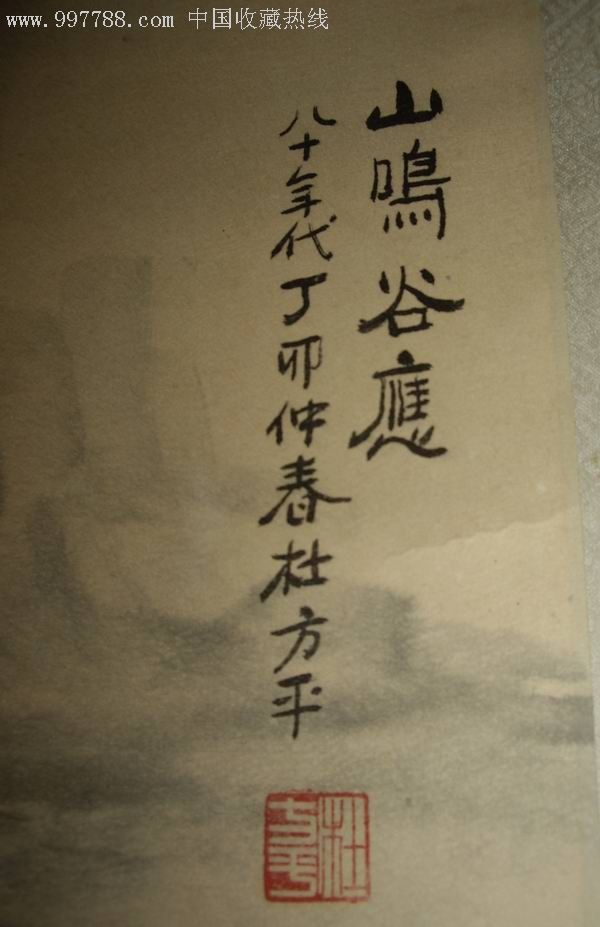 www.997788.com 中国收藏热线
山鳴谷應
八十年代丁卯仲春杜方平
杜方平